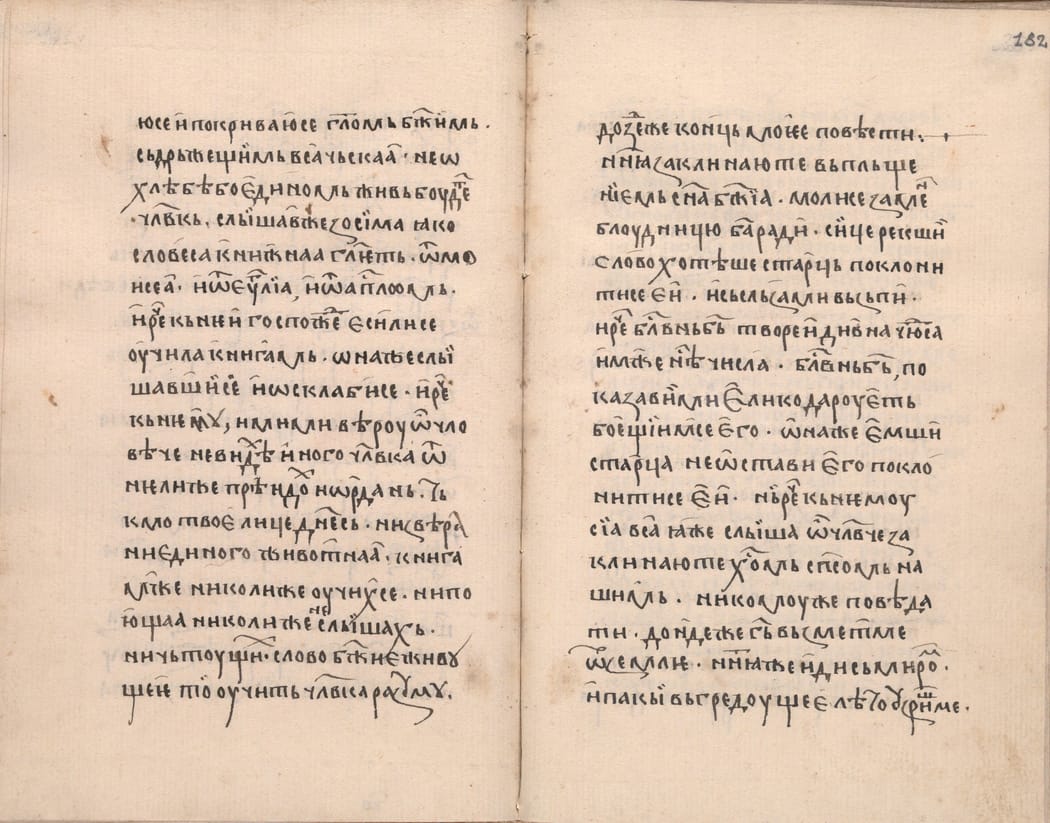 юсе и покриваюсе гл҃омь бж҃иимь.
съдрьжещимь всачьскаа · не ѡ
хлѣбѣ бо единомь живь боуде
· чл҃вкь. слышав же зосїма ꙗко
словеса книжнаа гл҃ѥть · ѿ мѡ
исеа · и ѿ еѵ҃лїа, и ѿ ап҃лѡмь ·
и ре҃ кь нѥи госпоже еси ли се
оучила книгамь · ѡна же слы
шавшисе и ѡсклабисе · и ре҃
кь нѥмꙋ, ими ми вѣроу ѿчло
вѣче не видѣх иного чл҃вка ѿ
нѥлиже прѣидох иѡрдань. тъ
кмо твое лице дн҃есь · ни звѣра
ни единого животнаа · книга
мже николиже оучихсе · ни по
ющаа николиже не слышахь ·
ни чьтоущих · слово бж҃иѥ живꙋ
щеѥ то оучить чл҃вка разꙋмꙋ.
182
дозеже конць моѥе повѣсти.
нн҃ꙗ заклинаю те вьпльще
нїемь сн҃а бж҃їа · моли се за мѥ
блоудницю ба҃ ради · сице рекши
слово хотѣше старць поклони
тисе еи · и сьльзами вьзьпи ·
и ре҃ бл҃вньбь творѥи дивна чюса
имже нѣ числа · бл҃вньбь, по
казави ми елико дароуеть
боещїимсе его · ѡна же емши
старца не ѡстави его покло
нитисе еи · нь ре҃ кь нѥмоу
сїа вса ꙗже слыша ѿчл҃вче за
клинаю те хо҃мь сп҃сомь на
шимь · никомоуже повѣда
ти · дондеже гь҃ вьзметь ме
ѿ землѥ · нн҃ꙗ же иди сь миромь ·
и пакы вь гредоущее лѣто ꙋзриши ме ·